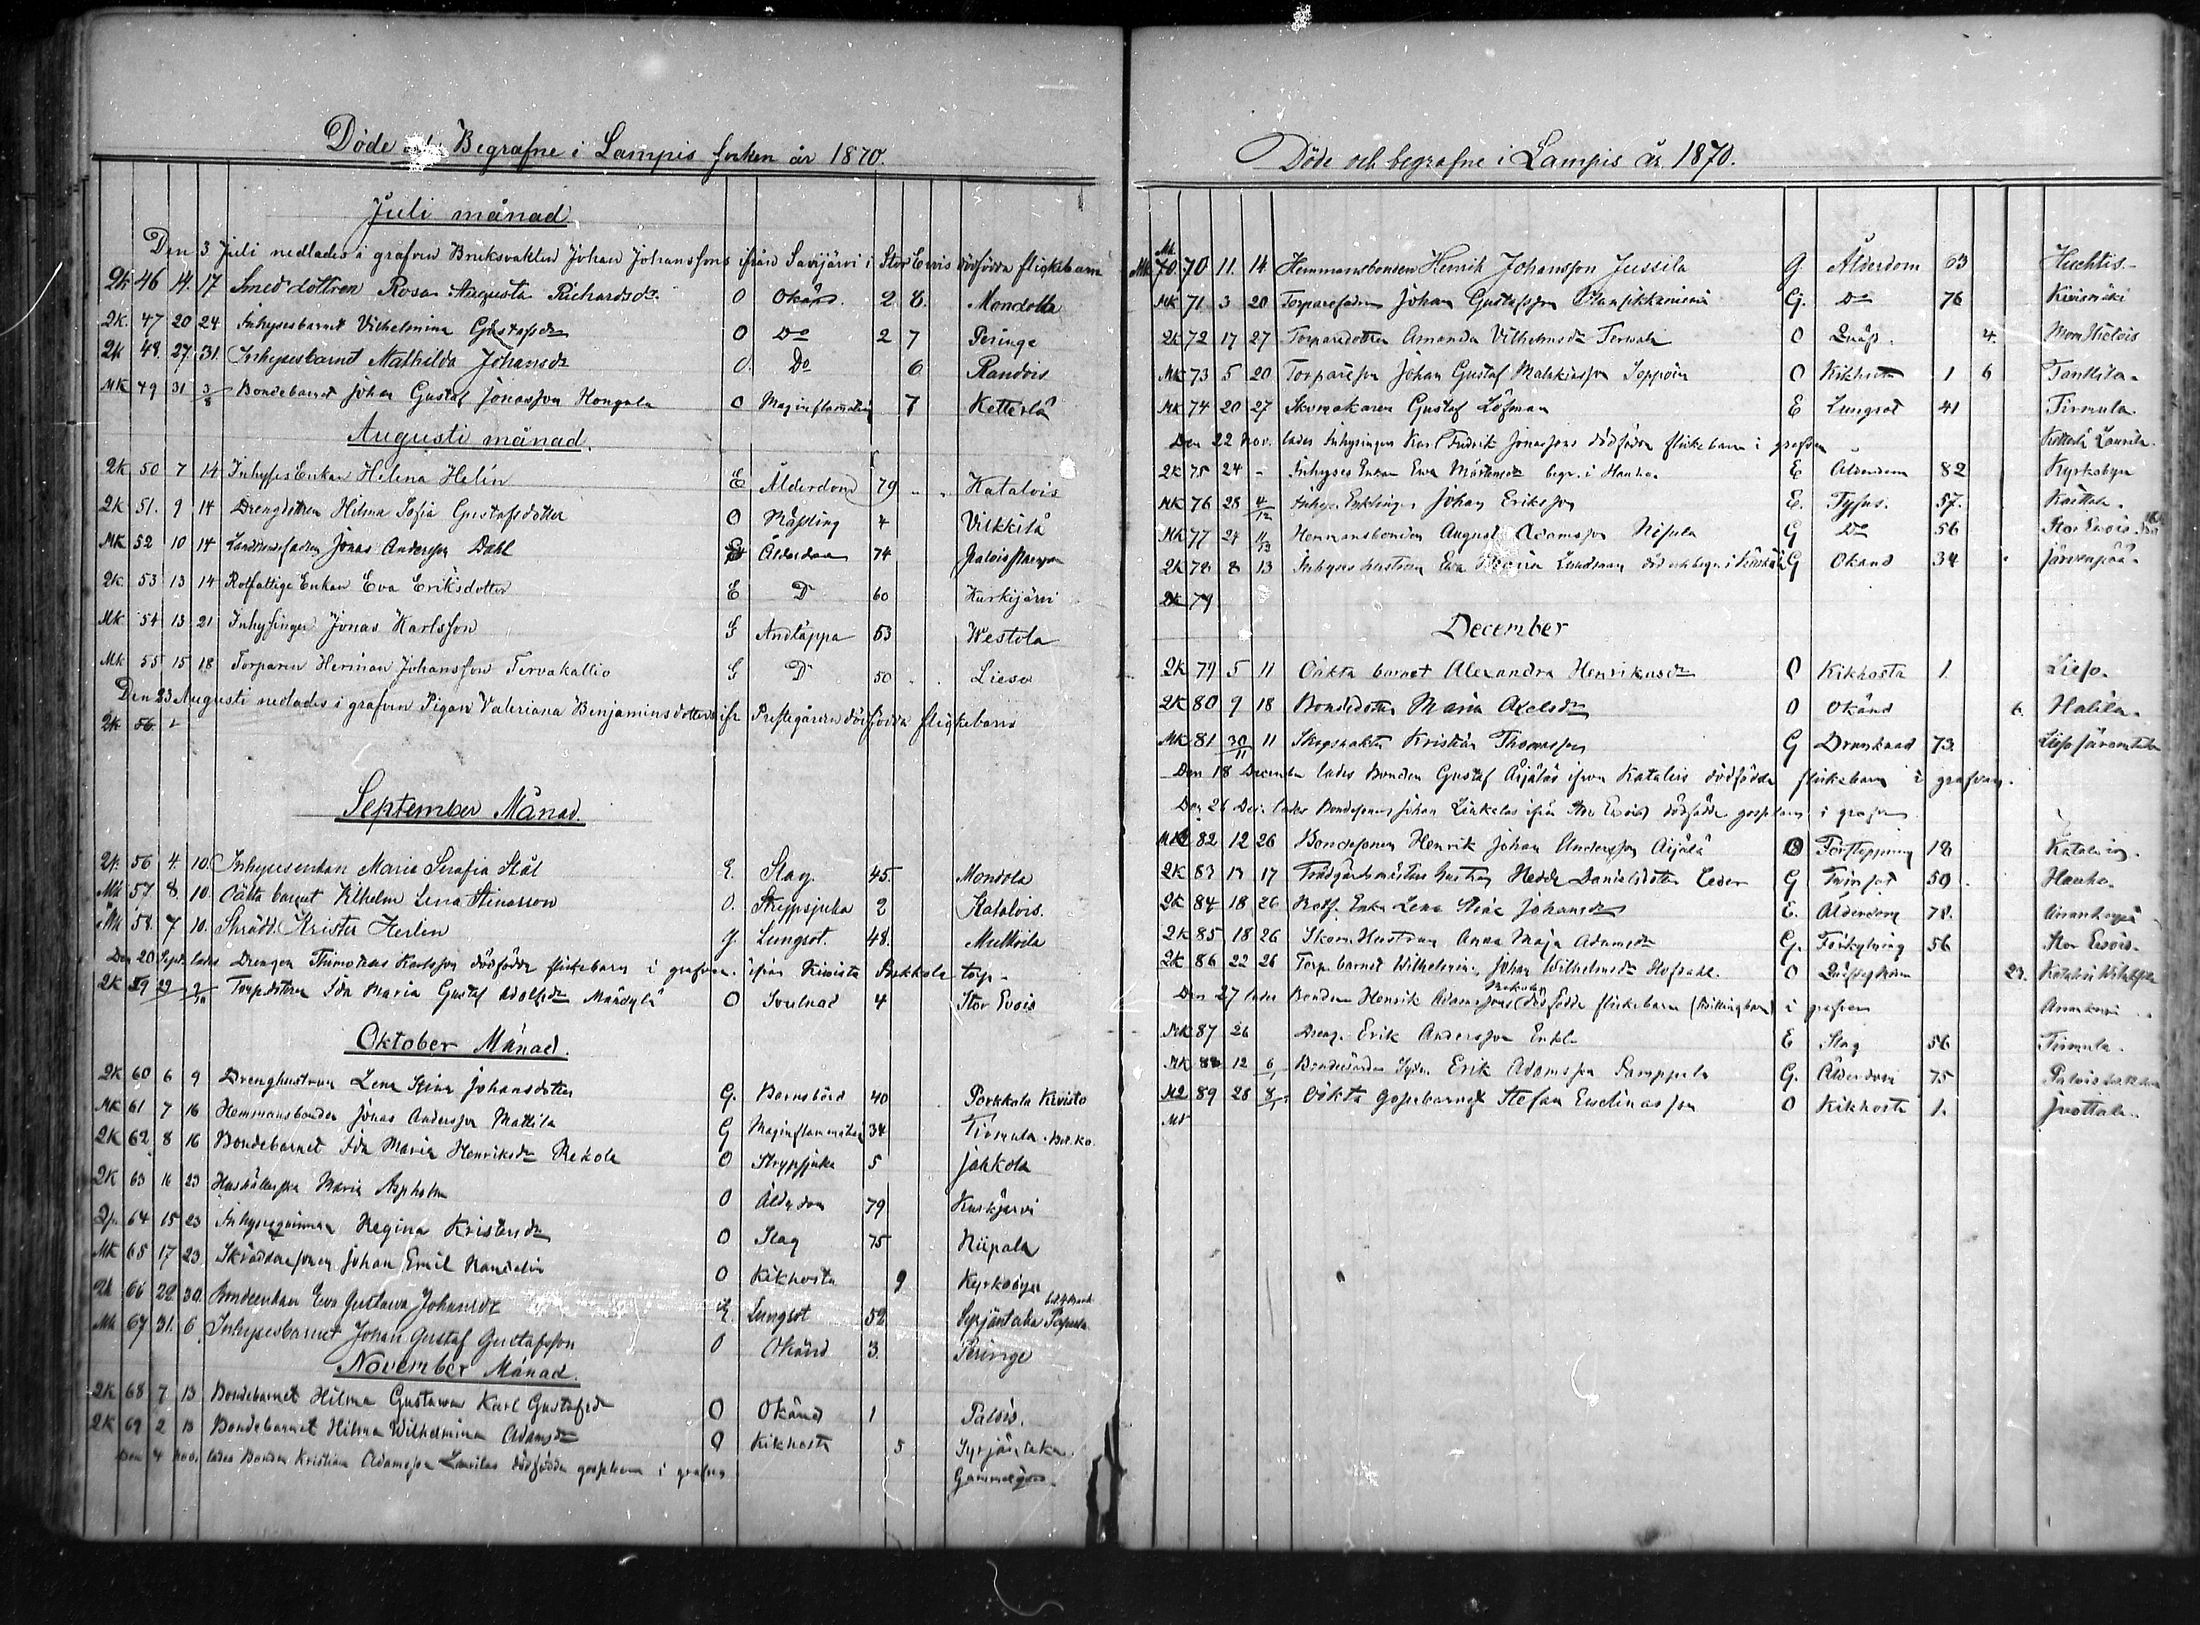 Döde och Begrafne i Lampis socken år 1870.
Juli månad
Den 3 Juli nedlades i grafven Bruksvakten Johan Johanssons ifrån Savijärvi i Stor Evois dödfödda flickebarn
Qk 46 14. 17 Smeddottren Rosa Augusta Richardsdr. O Okänd. 2 8. Mondolla
2K. 47 20 24 Inhysesbarnet Vilhelmina Gustafsdr O Do 2 7 Peringe
2k 48. 27 31. Inhysesbarnet Mathilda Johansdr O. Do 6 Randois
MK 49 31 3/8 Bondebarnet Johan Gustaf Jonasson Kongala O Maginflammation 7 Ketterlä
Augusti månad.
2K 50 7 14 Inhyses Enkan Helena Helin E Ålderdom 79 Katalois
2K 51. 9 14 Drengdottren Hilma Sofia Gustafsdotter O Mässling 4 Vilkkilä
MK 52 10 14 Jonas Andersson Dahl Ålderdom 74
2K 53 13 14 Rotfattige Enkan Eva Eriksdotter E D 60 Kurkijärvi
MK 54 13 21 Inhysingen Jonas Karlsson G Andtäppa 53 Westola
MK 55 15 18 Torparen Herman Johansson Tervakallio G D 50 Lieso
Den 23 Augusti nedlades i grafven Pigan Valeriana Benjaminsdotters ifr. Prestegården dödfödda flickebarn
2k 56
September Månad.
2K 56 4. 10. Inhysesenkan Maria Serafia Stål E. Slag. 45. Mondola
Mk 57 8. 10. Oäkta barnet Vilhelm Lena Stinasson O. Strypsjuka 2 Katalois.
Mk 58. 7 10. Skrädd. Krister Herlin g. Lungsot. 48. Mulkoila
Den 20 Sept. lades Drengen Thimoteus Karlsson dödfödde flickebarn i grafven. ifrån Kivistö Porkkola torp.
2K 59 29 2/10 Torp.dottren Ida Maria Gustaf Adolfsdr Mändylä O Svulnad 4 Stor Evois
Oktober Månad.
2K 60 6 9 Drenghustrun Lena Stina Johansdotter G. Barnsbörd 40 Porkkala Kivistö
MK 61 7 16 Hemmansbonden Jonas Andersson Mattila G Maginflammation 34 Tirmula
2K 62 8 16 Bondebarnet Ida Maria Henriksdr Rekola O Strypsjuka 5 Jahkola
2K 63 16 23 Maria Aspholm O Ålderdom 79 Kurkijärvi
64 15 23 Inhysesqvinnan Regina Kristersdr O Slag 75 Niipala
MK 65 17 23 Skräddaresonen Johan Emil O Kikhosta 9 Kyrkobyn
2k 66 22 30. Bondeenkan Eva Gustava Johansdr E. Lungsot 52 Syrjäntaka
Mk 67 31. 6 Inhysesbarnet Johan Gustaf Gustafsson O Okänd 3 Peringe
November Månad.
2K 68 7 13 Bondebarnet Hilma Gustava Karl Gustafsdr O Okänd 1 Palois.
2K 69 2 13 Bondebarnet Hilma Wilhelmina Adamsdr O Kikhosta 5 Syrjäntaka.
Den 4 nov. lades Bonden Kristian Adamsson Laurilas dödfödda gossebarn i grafven
Döde och begrafne i Lampis år 1870.
Mk 70 11. 14 Hemmansbonden Henrik Johansson Jussila G. Ålderdom 63 Huhtis
MK 71 3 20 Torparefadern Johan Gustafsson G. Do 76 Kivismäki
2K 72 17 27 Torparedottren Amanda Vilhelmsdr Tervala O 4.
MK 73 5 20 Torpareson Johan Gustaf O Kikhosta 1 6 Tanttila.
MK 74 20 27 Skomakaren Gustaf Löfman E Lungsot 41 Tirmula.
Den 22 nov. lades Inhysingen Karl Fredrik Jonassons dödfödda flickebarn i grafven
2K 75 24 - Inhyses Enkan Eva Mårtensdr begr. i Hauho. E Ålderdom 82 Kyrkobyn
MK 76 28 4/12 Inhys. Enklingen Johan Eriksson E. Tyfus. 57.
MK 77 24 11/12 Hemmansbonden August Adamsson G Do 56 Stor Evois
2K 78 8 13 Inhyses hustrun Eva Maria Lindman G Okänd 34 Järvenpää.
2K 79
December
2K 79 5 11 Oäkta barnet Alexandra Henrikasdr O Kikhosta 1. Lieso.
2K 80 9 18 Bondedotter Maria Axelsdr O Okänd 6. Halila.
MK 81 30/11 11 Skogvakten Kristian Thomasson G Drunknad 73.
Den 18 December lades Bonden Gustaf Äijäläs ifrån Katalois dödfödda flickebarn i grafven.
Den 26 Dec. lades Bondesonen Johan ifrån Stor Evois dödfödde gossebarn i grafven
82 12 26 Bondesonen Henrik Johan Andersson Äijälä O Förstoppning 18 Katalois.
2K 83 13 17 Trädgårdsmästare hustrun Hedda Danielsdotter Ceder G 50 Hauho.
2K 84 18 26 Rotf. Enk. Lena Stina Johansdr E. Ålderdom 78.
2K 85 18 26 Skom. Hustrun Anna Maja Adamsdr G. Förkylning 56 Stor Evois.
2K 86 22 26 Torp. barnet Wilhelmina Johan Wilhelmsdr O 23.
Den 27 lades Bonden Henrik Adamssons dödfödde flickebarn (tvillingbarn) i grafven
MK 87 26 Dreng. Erik Andersson Enkl. E Slag 56 Tirmula.
MK 88 12 6/1 Erik Adamsson Samppala G. Ålderdom 75
89 28 8/1 Oäkta gossebarnet Stefan Evelinasson O Kikhosta 1. Juottola.